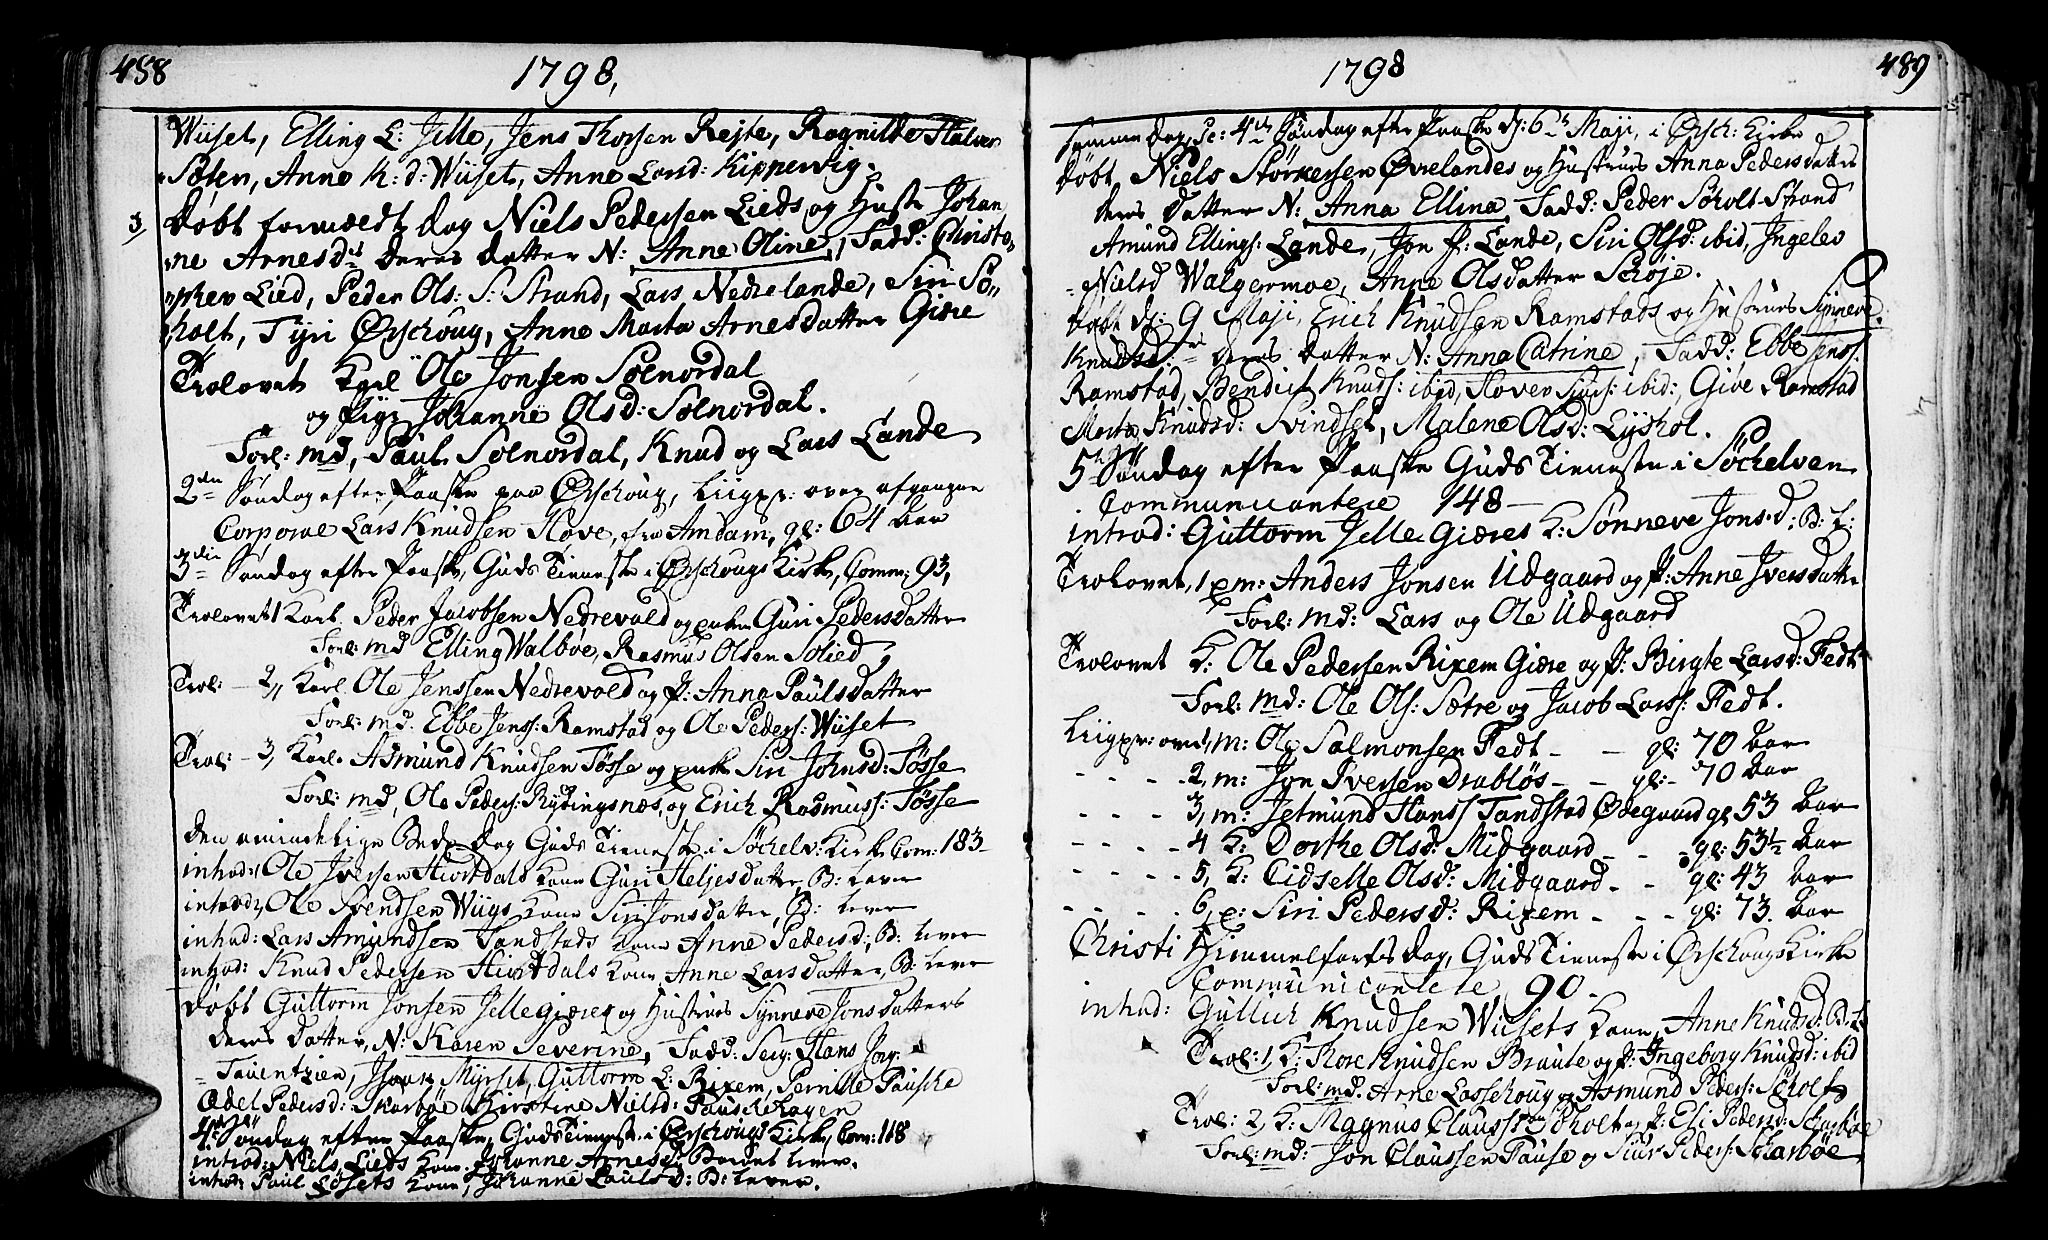 488
1798,
Wiiset, Elling L: Jelle, Jens Thorsen Rejte, Ragnilde Halver
Søten, Anne K: d: Wiiset, Anne Larsd: Kippervig.
3, Døbt formældt dag Niels Pedersen Lieds og Hustr Johan
ne Arnesd: deres datter N: Anne Oline, Fadd: Christo
pher Lied, Peder Ols: S: Strand, Lars Nedrelande, Siri Sø
holt, Tyri Ørschoug, Anne Marta Arnesdatter Giære
Trolovet Karl Ole Jonsen Solnordal
og Pige Johanne Olsd: Solnordal.
Forl: md, Paul Solnordal, Knud og Lars Lande
2den Søndag efter Paaske paa Ørschoug, Liigpr: over afgangne
Corporal Lars Knudsen Hove, fra Amdam, gl: 64 Aar
3die Søndag efter Paaske, Guds Tieneste i Ørschougs Kirke, Comm: 93,
Trolovet 1 Karl Peder Jacobsen Nedrevold og enke Guri Pedersdatter
Forl: md Elling Walbøe, Rasmus Olsen Solied,
Trol: - 2, Karl Ole Jenssen Nedrevold og P: Anna Paulsdatter
Forl: md. Ebbe Jenss: Ramstad og Ole Peders: Wiiset
Trol: - 3, Karl Asmund Knudsen Tøsse og enke Siri Johnsd: Tøsse
Forl: md, Ole Peders: Rydingsnæs, og Erich Rasmuss: Tøsse
Den almindelige Bede Dag Guds Tieneste i Søchelv: Kirke Com: 183
introd: Ole Iversen Hiortdals Kone Guri Heljesdatter, B: lever
introd, Ole Svendsen Wiigs Kone Siri Jonsdatter, B: lever
introd: Lars Amundsen Tandstads Kone Anne Pedersd: B: lever
introd: Knud Pedersen Hiortdals Kone, Anne Larsdatter, B: lever
Døbt Guttorm Jonsen Jellegiæres og Hustrues Synneve Jonsdatters
deres datter, N: Karen Severine, Fadd: Serg: Hans Jørg:
Tauentzien, Iver Myrset, Guttorm L: Rixem, Pernille Pausche
Odel Pedersd: Skarbøe Kirstine Nielsd: Pauschehagen
4de Søndag efter Paaske, Guds Tieneste i Ørschougs Kirke, Com: 118
introd: Niels Lieds Kone Johanne Arnesd: Barnet lever.
introd: Paul Løsets Kone, Johanne Paulsd: B: lever.
1798
489
Samme dag, Sc: 4de Søndag efter Paaske d: 6te Maji, i Ørsch: Kirke
Døbt, Niels Størkersen Øvrelandes og Hustrues Anna Pedersdatter
deres datter N: Anna Ellina Fadd: Peder Søholt Strand
Amund Ellings: Lande, Jon P: Lande, Siri Olsd: ibid, Ingelev
Nielsd Walgermoe, Anne Olsdatter Schøje.
Døbt d: 9 Maji, Erich Knudsen Ramstads og Hustrues Synneve
Knudsd: deres datter N: Anna Catrine, Fadd: Ebbe Jenss:
Ramstad, Bendict Knuds: ibid, Hover Siurs: ibid:, Give Ramstad
Marta Knudsd: Svindset, Malene Olsd: Lyshol.
5te Søndag efter Paaske Guds Tieneste i Søchelven
Communicantere 148
introd: Guttorm Jelle giæres K: Sønneve Jons.d: B: L:
Trolovet, 1 em: Anders Jonsen Udgaard og P: Anne Iversdatter
Forl: md: Lars og Ole Udgaard
Trolovet K: Ole Pedersen Rixem Giære og P: Birgte Larsd: Fedt
Forl: md: Ole Ols: Sætre og Jacob Larss: Fedt.
Liigpr: over, m: Ole Salmonsen Fedt - - gl: 70 Aar
- - - - 2, m: Jon Iversen Drabløs - - gl: 70 Aar
- - - - 3, m: Jetmund Hanss Tandstad Ødegaard gl 53 Aar
- - - - 4 K: Dorthe Olsd: Midgaard - - gl: 53½ Aar
- - - - 5, K: Cidselle Olsd: Midgaard - - gl: 43 Aar
- - - - 6, p: Siri Pedersd: Rixem - - - gl: 73. Aar
Christi Himmelfarts dag, Guds Tieneste i Ørschougs Kirke
Communicantere 90.
introd: Gullich Knudsen Wiisets Kone, Anne Knudsd: B: L:
Trol: 1, K: Thore Knudsen Braute og P: Ingeborg Knudsd: ibid
Forl: md. Arne Lassehoug og Asmund Peders: Søholt
Trol: 2, K: Magnus Clauss Søholt P: Eli Pedersd: Scharbøe
Forl: md: Jon Claussen Pause og Siur Peders: Scharbøe